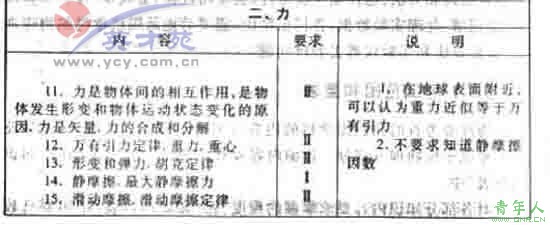 二、力
内 容 要求 说 明
11. 力是物体间的相互作用,是物 Ⅱ 1. 在地球表面附近,
体发生形变和物体运动状态变化的原 可以认为重力近似等于万
因. 力是矢量. 力的合成和分解 有引力
12. 万有引力定律. 重力. 重心 Ⅱ 2. 不要求知道静摩擦
13. 形变和弹力. 胡克定律 Ⅱ 因数
14. 静摩擦. 最大静摩擦力 Ⅰ
15. 滑动摩擦. 滑动摩擦定律 Ⅱ
英才苑
www.ycy.com.cn
青年人